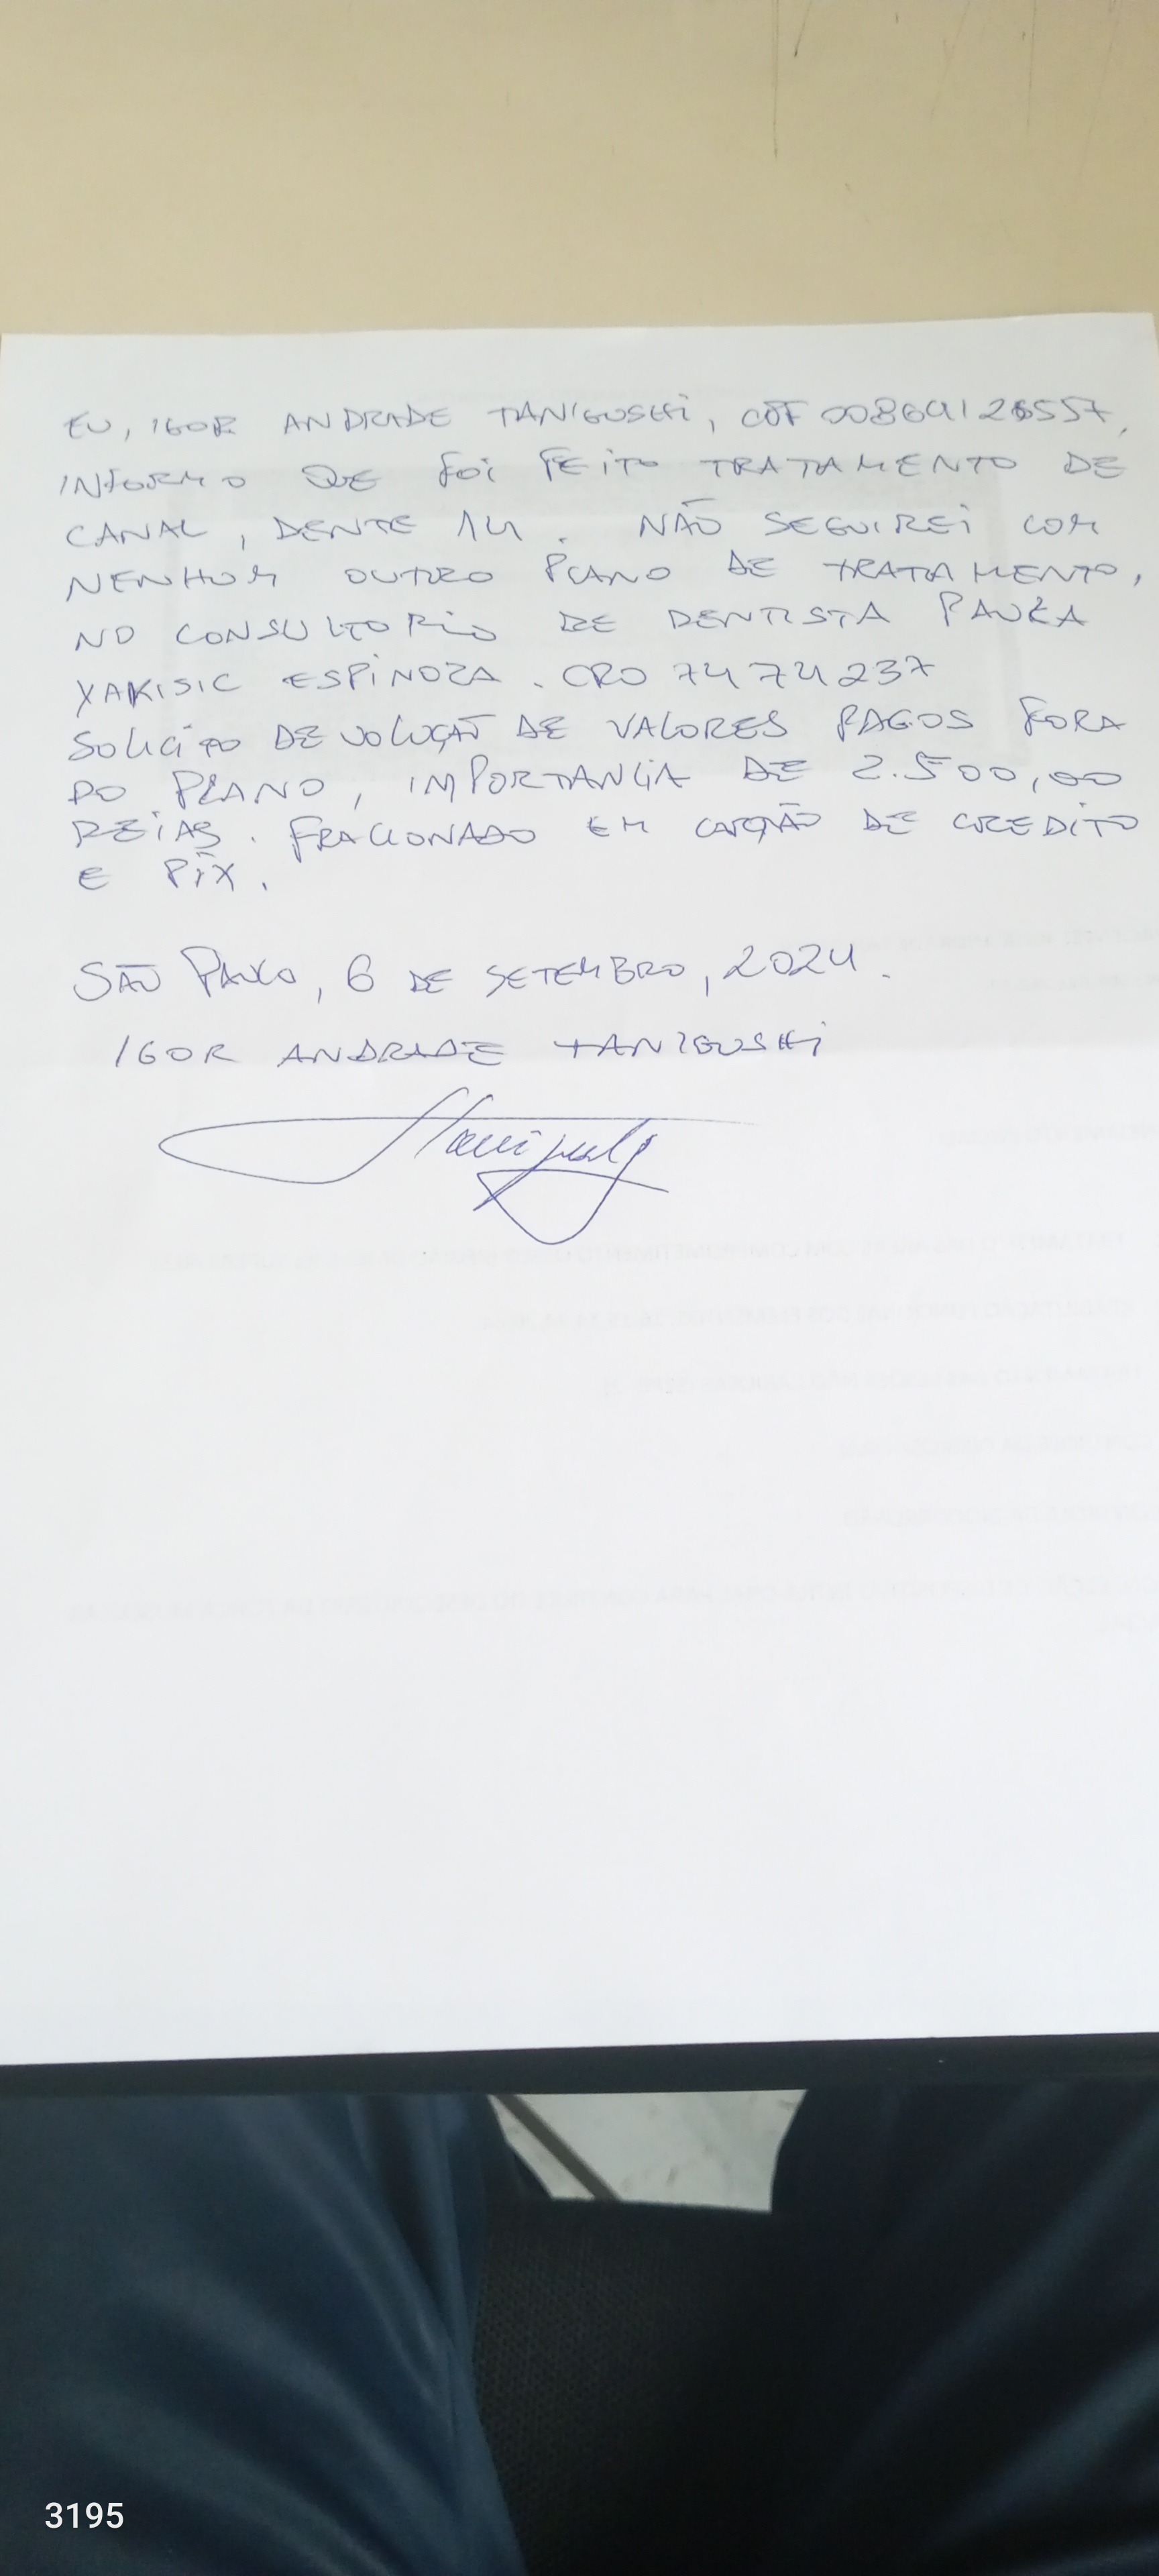 EU, IGOR ANDRADE TANIGUSHI, CPF 00869126557,
INFORMO QUE FOI FEITO TRATAMENTO DE
CANAL, DENTE 14. NÃO SEGUIREI COM
NENHUM OUTRO PLANO DE TRATAMENTO,
NO CONSULTORIO DE DENTISTA PAULA
YAKISIC ESPINOZA. CRO 7474237
SOLICITO DEVOLUÇÃO DE VALORES PAGOS FORA
DO PLANO, IMPORTANCIA DE 2.500,00
REIAS. FRACIONADO EM CARTÃO DE CREDITO
E PIX.
SÃO PAULO, 6 DE SETEMBRO, 2024.
IGOR ANDRADE TANIGUSHI
3195